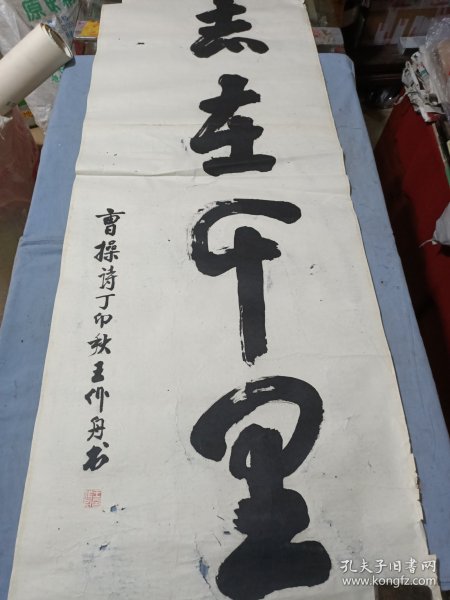 志在千里
曹操诗丁卯秋王作舟书
孔夫子旧书网
www.kongfz.com